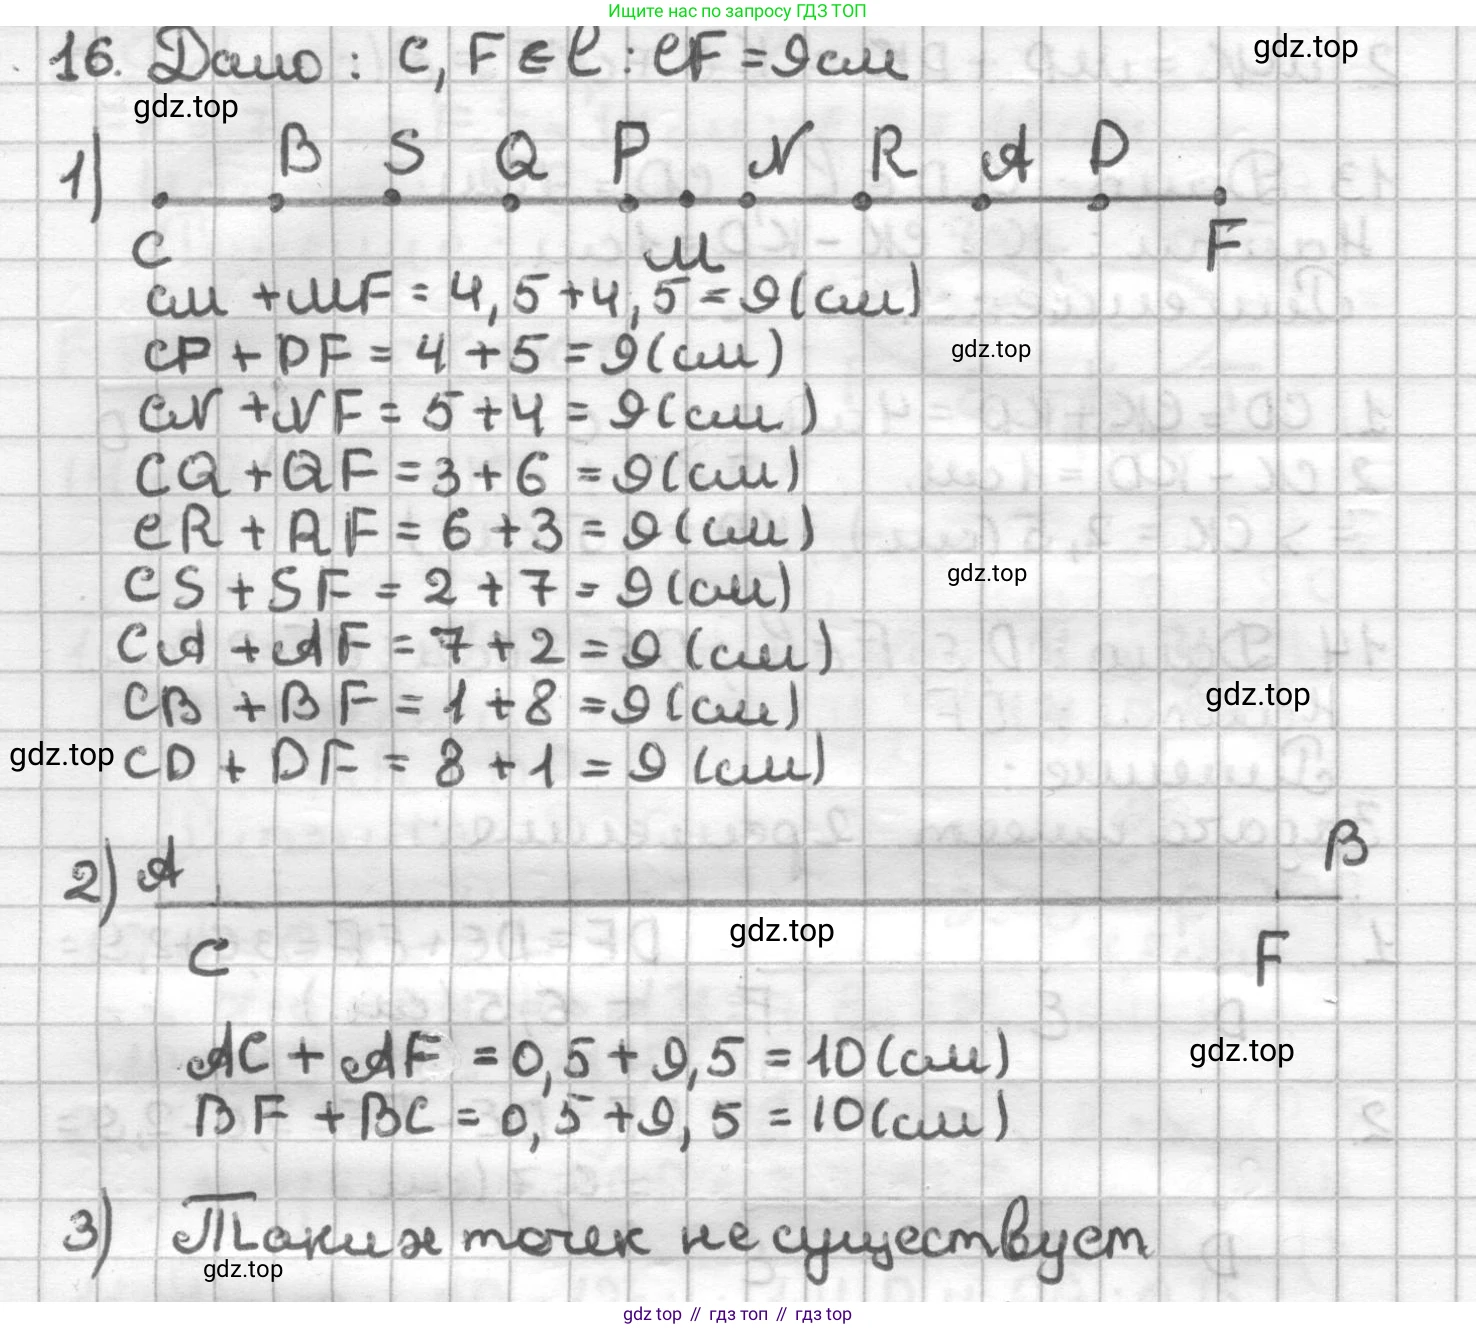 Ищите нас по запросу ГДЗ ТОП
16. Дано : C, F ∈ l : CF = 9см
gdz.top
gdz.top
1) B S Q P N R A D
C M F
CM + MF = 4,5 + 4,5 = 9 (см)
CP + DF = 4 + 5 = 9 (см)
gdz.top
CN + NF = 5 + 4 = 9 (см)
CQ + QF = 3 + 6 = 9 (см)
CR + RF = 6 + 3 = 9 (см)
gdz.top
CS + SF = 2 + 7 = 9 (см)
CA + AF = 7 + 2 = 9 (см)
CB + BF = 1 + 8 = 9 (см)
gdz.top
gdz.top
CD + DF = 8 + 1 = 9 (см)
2) A B
gdz.top
C F
AC + AF = 0,5 + 9,5 = 10 (см)
gdz.top
BF + BC = 0,5 + 9,5 = 10 (см)
3) Таких точек не существует
gdz.top
gdz top // гдз топ // гдз top